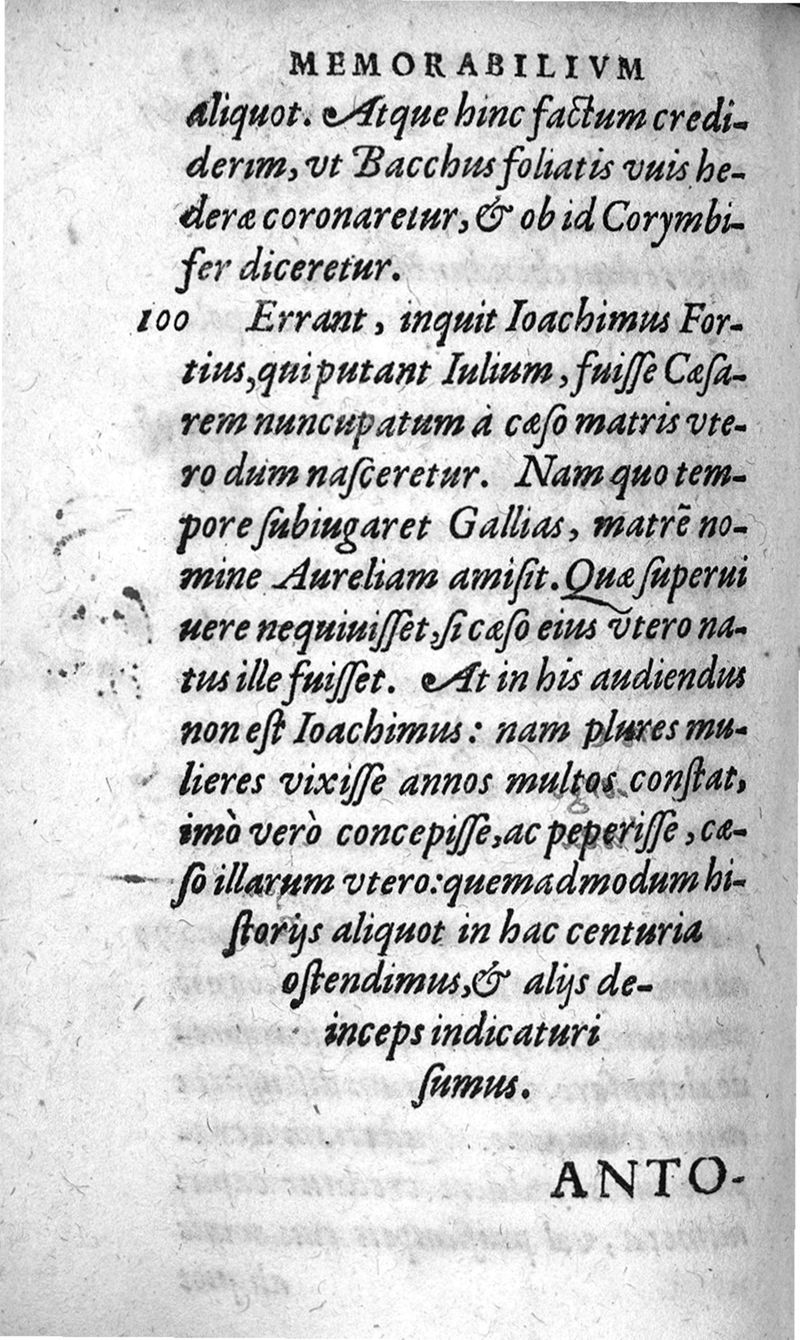 MEMORABILIVM
aliquot. Atque hinc factum credi-
derim, vt Bacchus foliatis vuis he-
deræ coronaretur, & ob id Corymbi-
fer diceretur.
100 Errant, inquit Ioachimus For-
tius, qui putant Iulium, fuiſſe Cæſa-
rem nuncupatum à cæſo matris vte-
ro dum naſceretur. Nam quo tem-
pore ſubiugaret Gallias, matrẽ no-
mine Aureliam amiſit. Quæ ſuperui
uere nequiuiſſet, ſi cæſo eius vtero na-
tus ille fuiſſet. At in his audiendus
non eſt Ioachimus: nam plures mu-
lieres vixiſſe annos multos conſtat,
imò verò concepiſſe, ac peperiſſe, cæ-
ſo illarum vtero: quemadmodum hi-
ſtorijs aliquot in hac centuria
oſtendimus, & alijs de-
inceps indicaturi
ſumus.
ANTO-